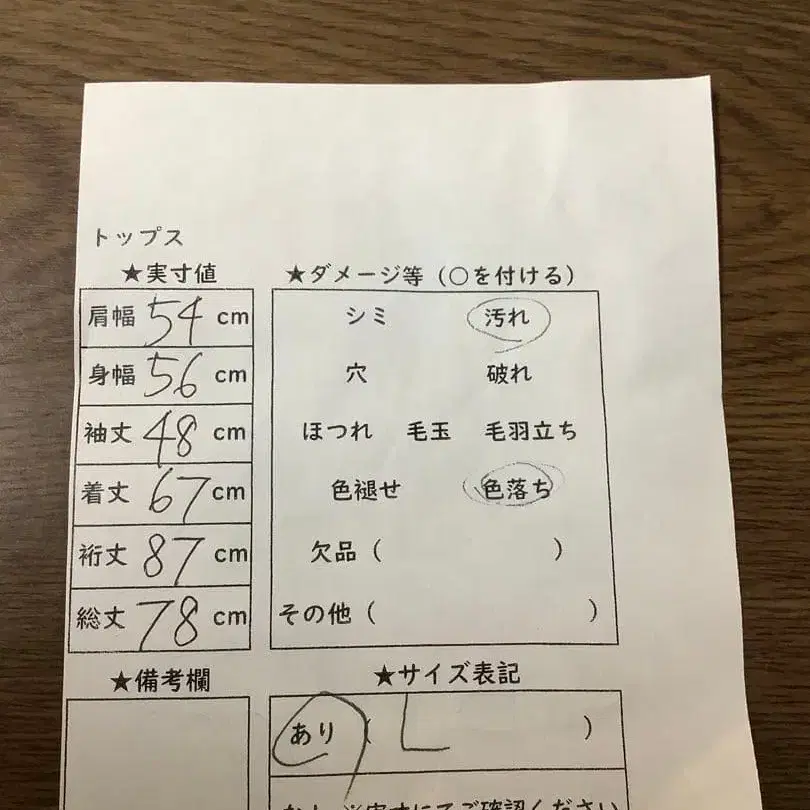 トップス
★実寸値
肩幅 54 cm
身幅 56 cm
袖丈 48 cm
着丈 67 cm
裄丈 87 cm
総丈 78 cm
★ダメージ等（○を付ける）
シミ 汚れ
穴 破れ
ほつれ 毛玉 毛羽立ち
色褪せ 色落ち
欠品（ ）
その他（ ）
★備考欄
★サイズ表記
あり（ L ）
なし ※実寸にてご確認ください